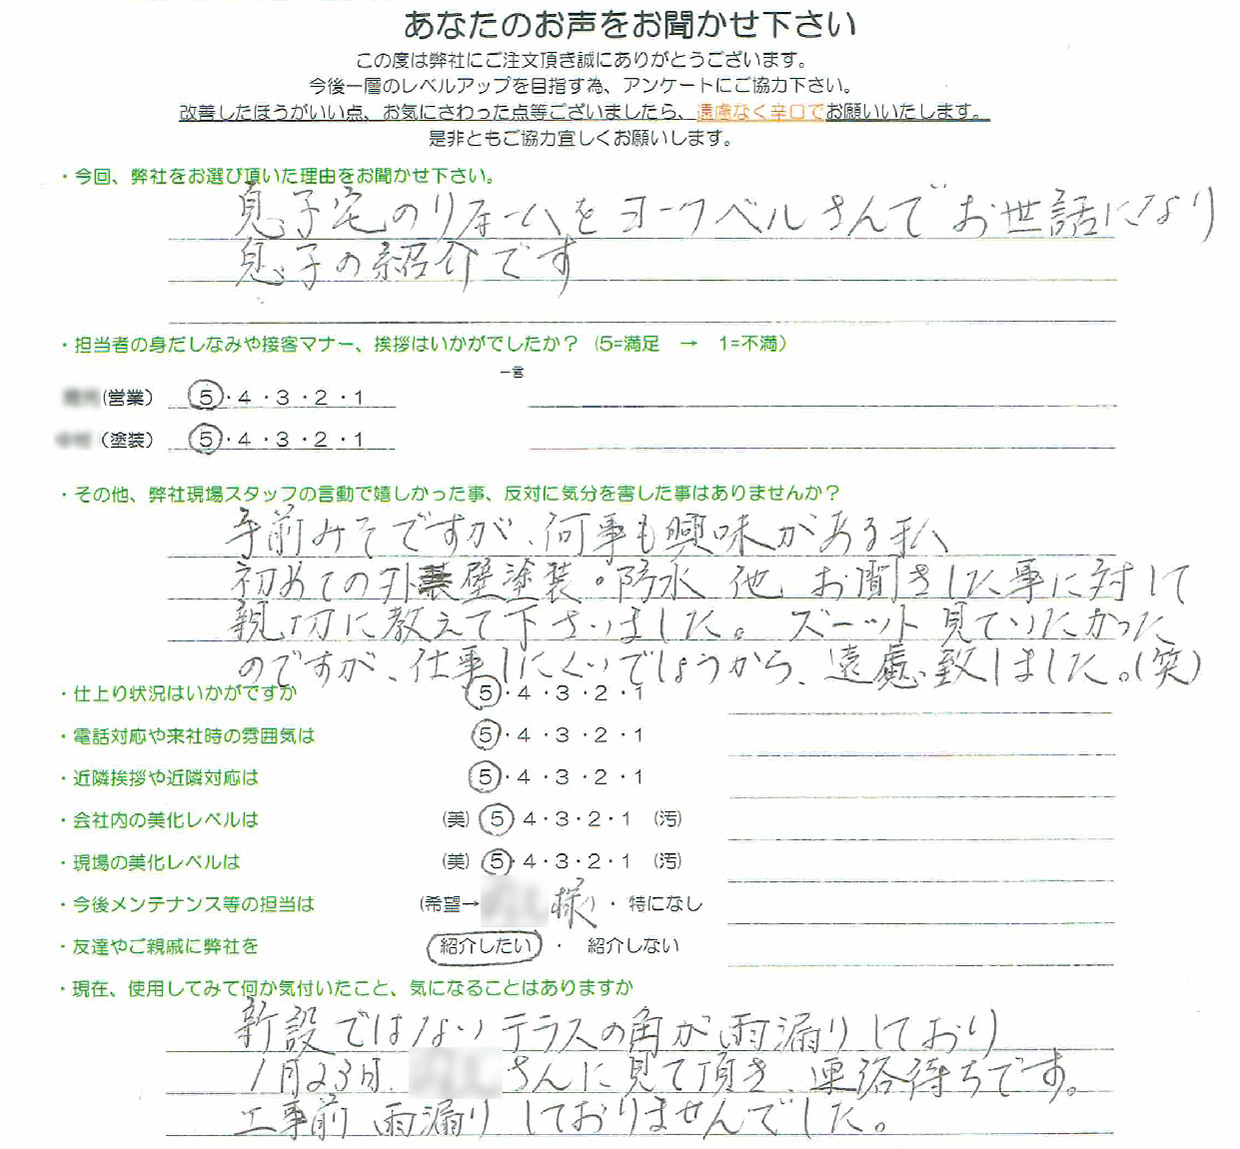 あなたのお声をお聞かせ下さい
この度は弊社にご注文頂き誠にありがとうございます。
今後一層のレベルアップを目指す為、アンケートにご協力下さい。
改善したほうがいい点、お気にさわった点等ございましたら、遠慮なく辛口でお願いいたします。
是非ともご協力宜しくお願いします。
・今回、弊社をお選び頂いた理由をお聞かせ下さい。
息子宅のリホームをヨークベルさんでお世話になり
息子の紹介です
・担当者の身だしなみや接客マナー、挨拶はいかがでしたか？（5=満足 → 1=不満）
一言
(営業) 5・4・3・2・1
(塗装) 5・4・3・2・1
・その他、弊社現場スタッフの言動で嬉しかった事、反対に気分を害した事はありませんか？
手前みそですが、何事も興味がある私
初めての外壁塗装。防水 他 お聞きした事に対して
親切に教えて下さいました。ズーット見ていたかった
のですが、仕事しにくいでしょうから、遠慮致しました。(笑)
・仕上り状況はいかがですか 5・4・3・2・1
・電話対応や来社時の雰囲気は 5・4・3・2・1
・近隣挨拶や近隣対応は 5・4・3・2・1
・会社内の美化レベルは (美) 5 4・3・2・1 (汚)
・現場の美化レベルは (美) 5・4・3・2・1 (汚)
・今後メンテナンス等の担当は (希望→ 様)・特になし
・友達やご親戚に弊社を 紹介したい ・ 紹介しない
・現在、使用してみて何か気付いたこと、気になることはありますか
新設ではないテラスの角が雨漏りしており
1月23日、 さんに見て頂き、連絡待ちです。
工事前 雨漏りしておりませんでした。